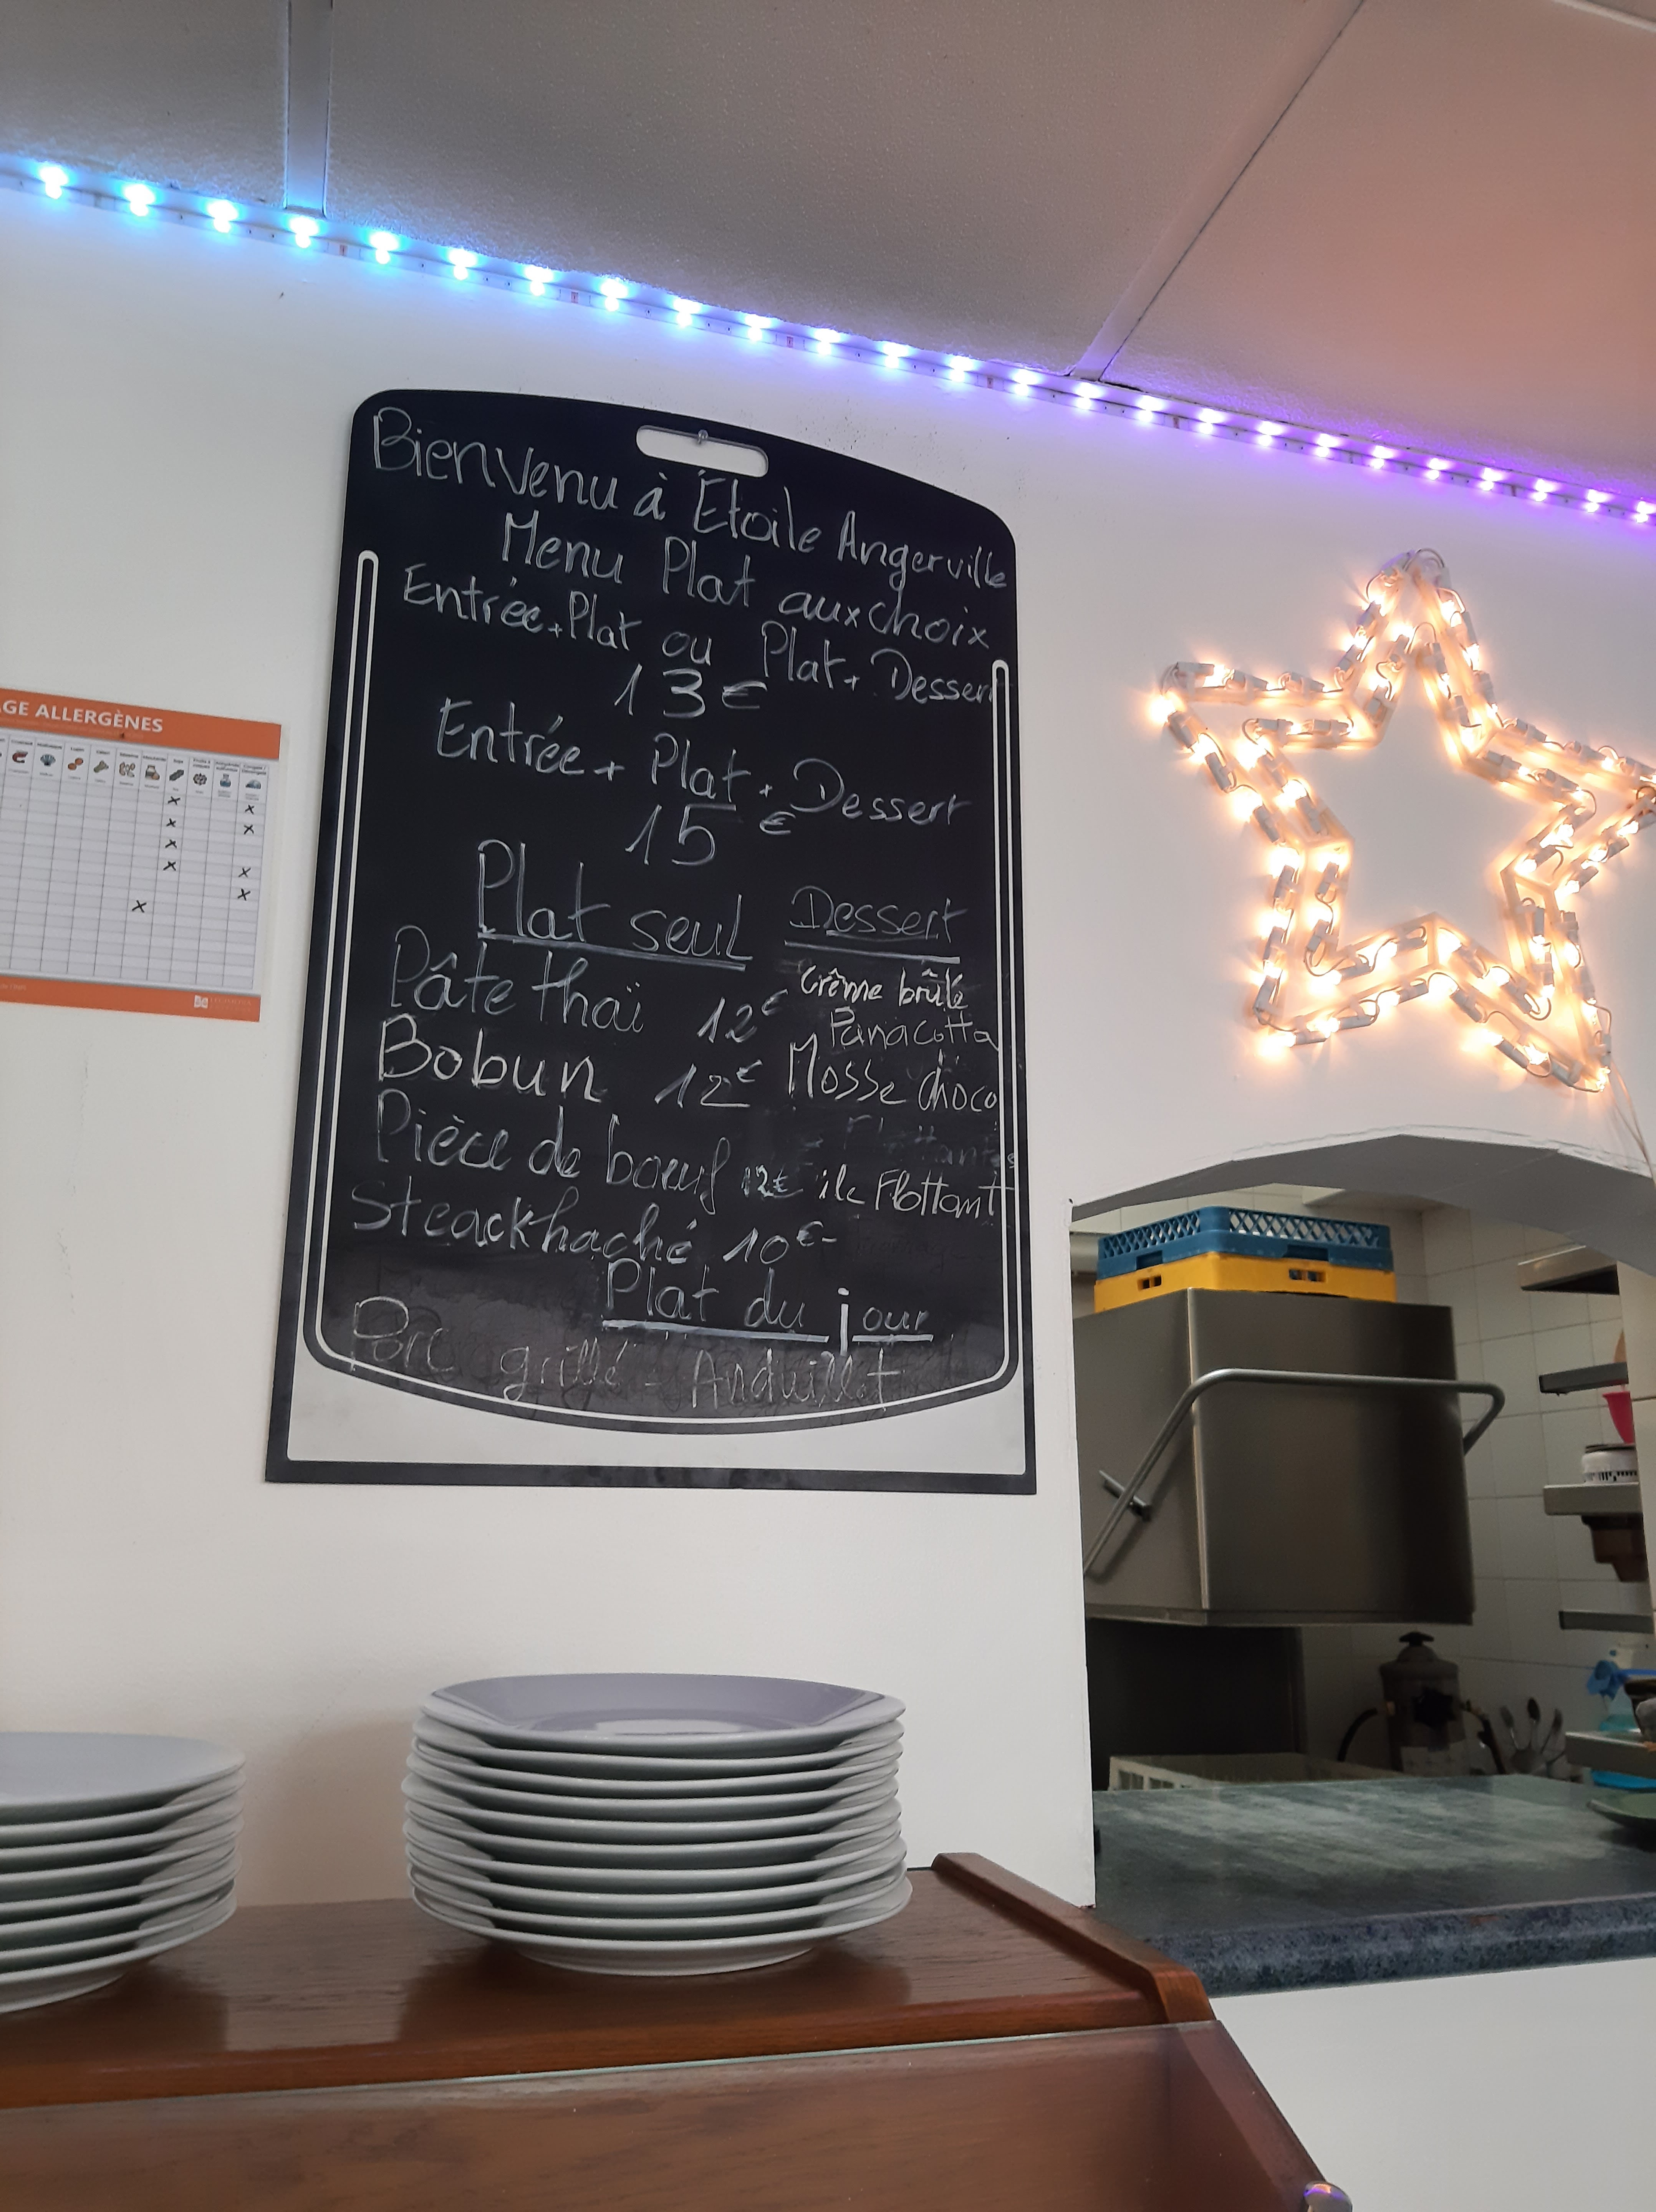 Bienvenu à Étoile Angerville
Menu Plat aux choix
Entrée + Plat ou Plat + Dessert
13€
Entrée + Plat + Dessert
15€
Plat seul
Pâte thaï 12€
Bobun 12€
Pièce de bœuf 12€
Steackhaché 10€
Dessert
Crême brûlé
Panacotta
Mosse choco
ile Flottant
Plat du jour
Porc grillé - Anduillet
AGE ALLERGÈNES